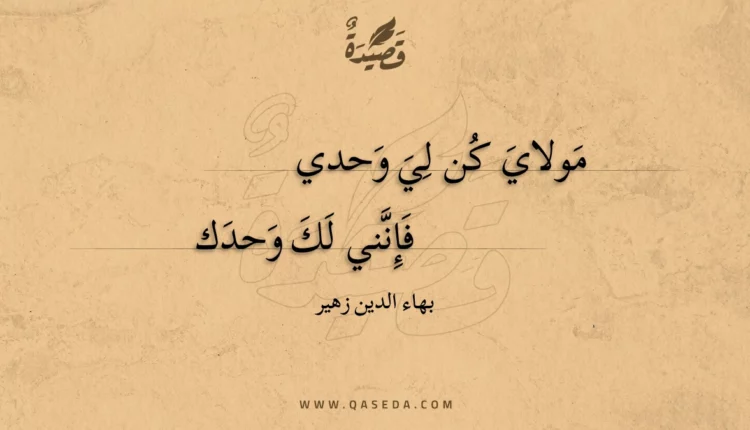 قَصِيدَةٌ
مَولايَ كُن لِيَ وَحدي
فَإِنَّني لَكَ وَحدَك
بهاء الدين زهير
WWW.QASEDA.COM